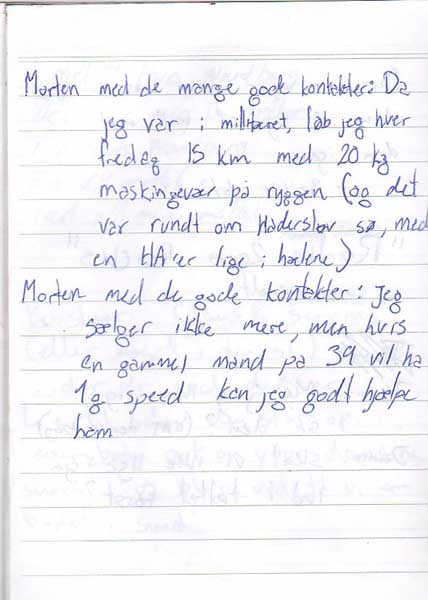 Morten med de mange gode kontakter: Da
jeg var i militæret, løb jeg hver
fredag 15 km med 20 kg
maskingevær på ryggen (og det
var rundt om Haderslev sø, med
en HA'er lige i hælene)
Morten med de gode kontakter: Jeg
sælger ikke mere, men hvis
en gammel mand på 39 vil ha
1g speed kan jeg godt hjælpe
ham